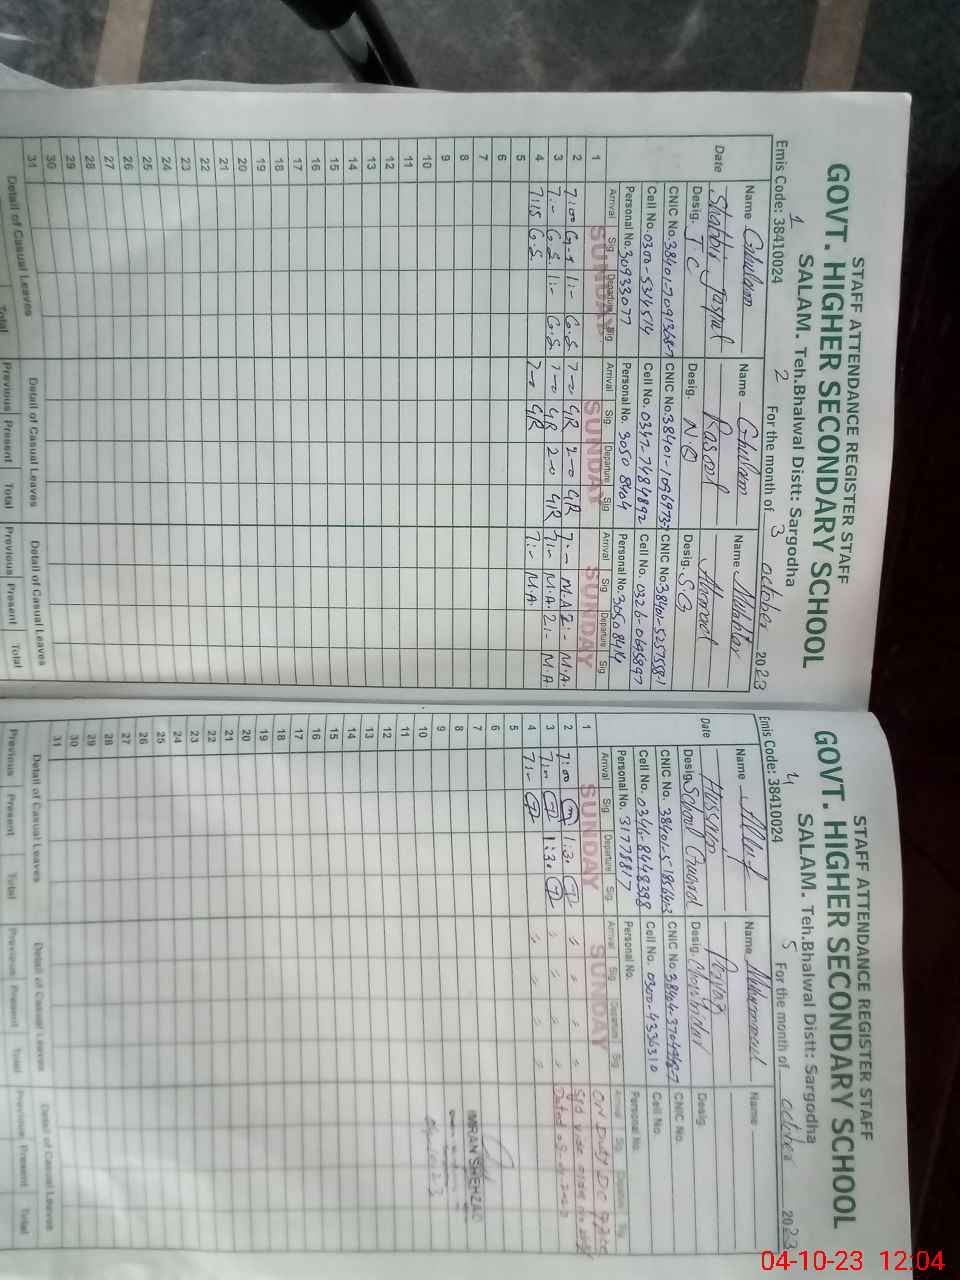 STAFF ATTENDANCE REGISTER STAFF
GOVT. HIGHER SECONDARY SCHOOL
SALAM. Teh.Bhalwal Distt: Sargodha
Emis Code: 38410024 For the month of october 2023
1 2 3
Name Ghulam Name Ghulam Name Mukhtar
Shabbir Rasool Ahmad
Desig. J.C Desig. N.Q Desig. S.G
CNIC No. 38401-7091368-7 CNIC No. 38401-1096973-7 CNIC No. 38401-5257558-1
Cell No. 0300-5314514 Cell No. 0342-7484892 Cell No. 0326-0695897
Personal No. 30933077 Personal No. 30508404 Personal No. 30508414
Date Arrival Sig. Departure Sig. Arrival Sig. Departure Sig. Arrival Sig. Departure Sig.
1 SUNDAY SUNDAY SUNDAY
2 7:00 G.S 1:- G.S. 7-0 GR 2-0 GR 7:- M.A 2:- M.A.
3 7:- G.S 1:- G.S. 7-0 GR 2-0 GR 7:- M.A. 2:- M.A.
4 7:15 G.S. 7-0 GR 7:- M.A.
5
6
7
8
9
10
11
12
13
14
15
16
17
18
19
20
21
22
23
24
25
26
27
28
29
30
31
Detail of Casual Leaves Detail of Casual Leaves Detail of Casual Leaves
Total Previous Present Total Previous Present Total
STAFF ATTENDANCE REGISTER STAFF
GOVT. HIGHER SECONDARY SCHOOL
SALAM. Teh.Bhalwal Distt: Sargodha
Emis Code: 38410024 For the month of october 2023
4 5
Name Altaf Name Muhammad Name
Hussain
Desig. School Guard Desig. Chowkidar Desig.
CNIC No. 38401-5185640-3 CNIC No. 38404-3704948-7 CNIC No.
Cell No. 0346-8448398 Cell No. 0300-4336310 Cell No.
Personal No. 31778817 Personal No. Personal No.
Date Arrival Sig. Departure Sig. Arrival Sig. Departure Sig. Arrival Sig. Departure Sig.
1 SUNDAY SUNDAY ON Duty D.C
2 7:00 1:30 vide order no
3 7:00 1:30 Dated
4 7:-
5
6
7 IMRAN SHEHZAD
8
9
10
11
12
13
14
15
16
17
18
19
20
21
22
23
24
25
26
27
28
29
30
31
Detail of Casual Leaves Detail of Casual Leaves Detail of Casual Leaves
Previous Present Total Previous Present Total Previous Present Total
04-10-23 12:04